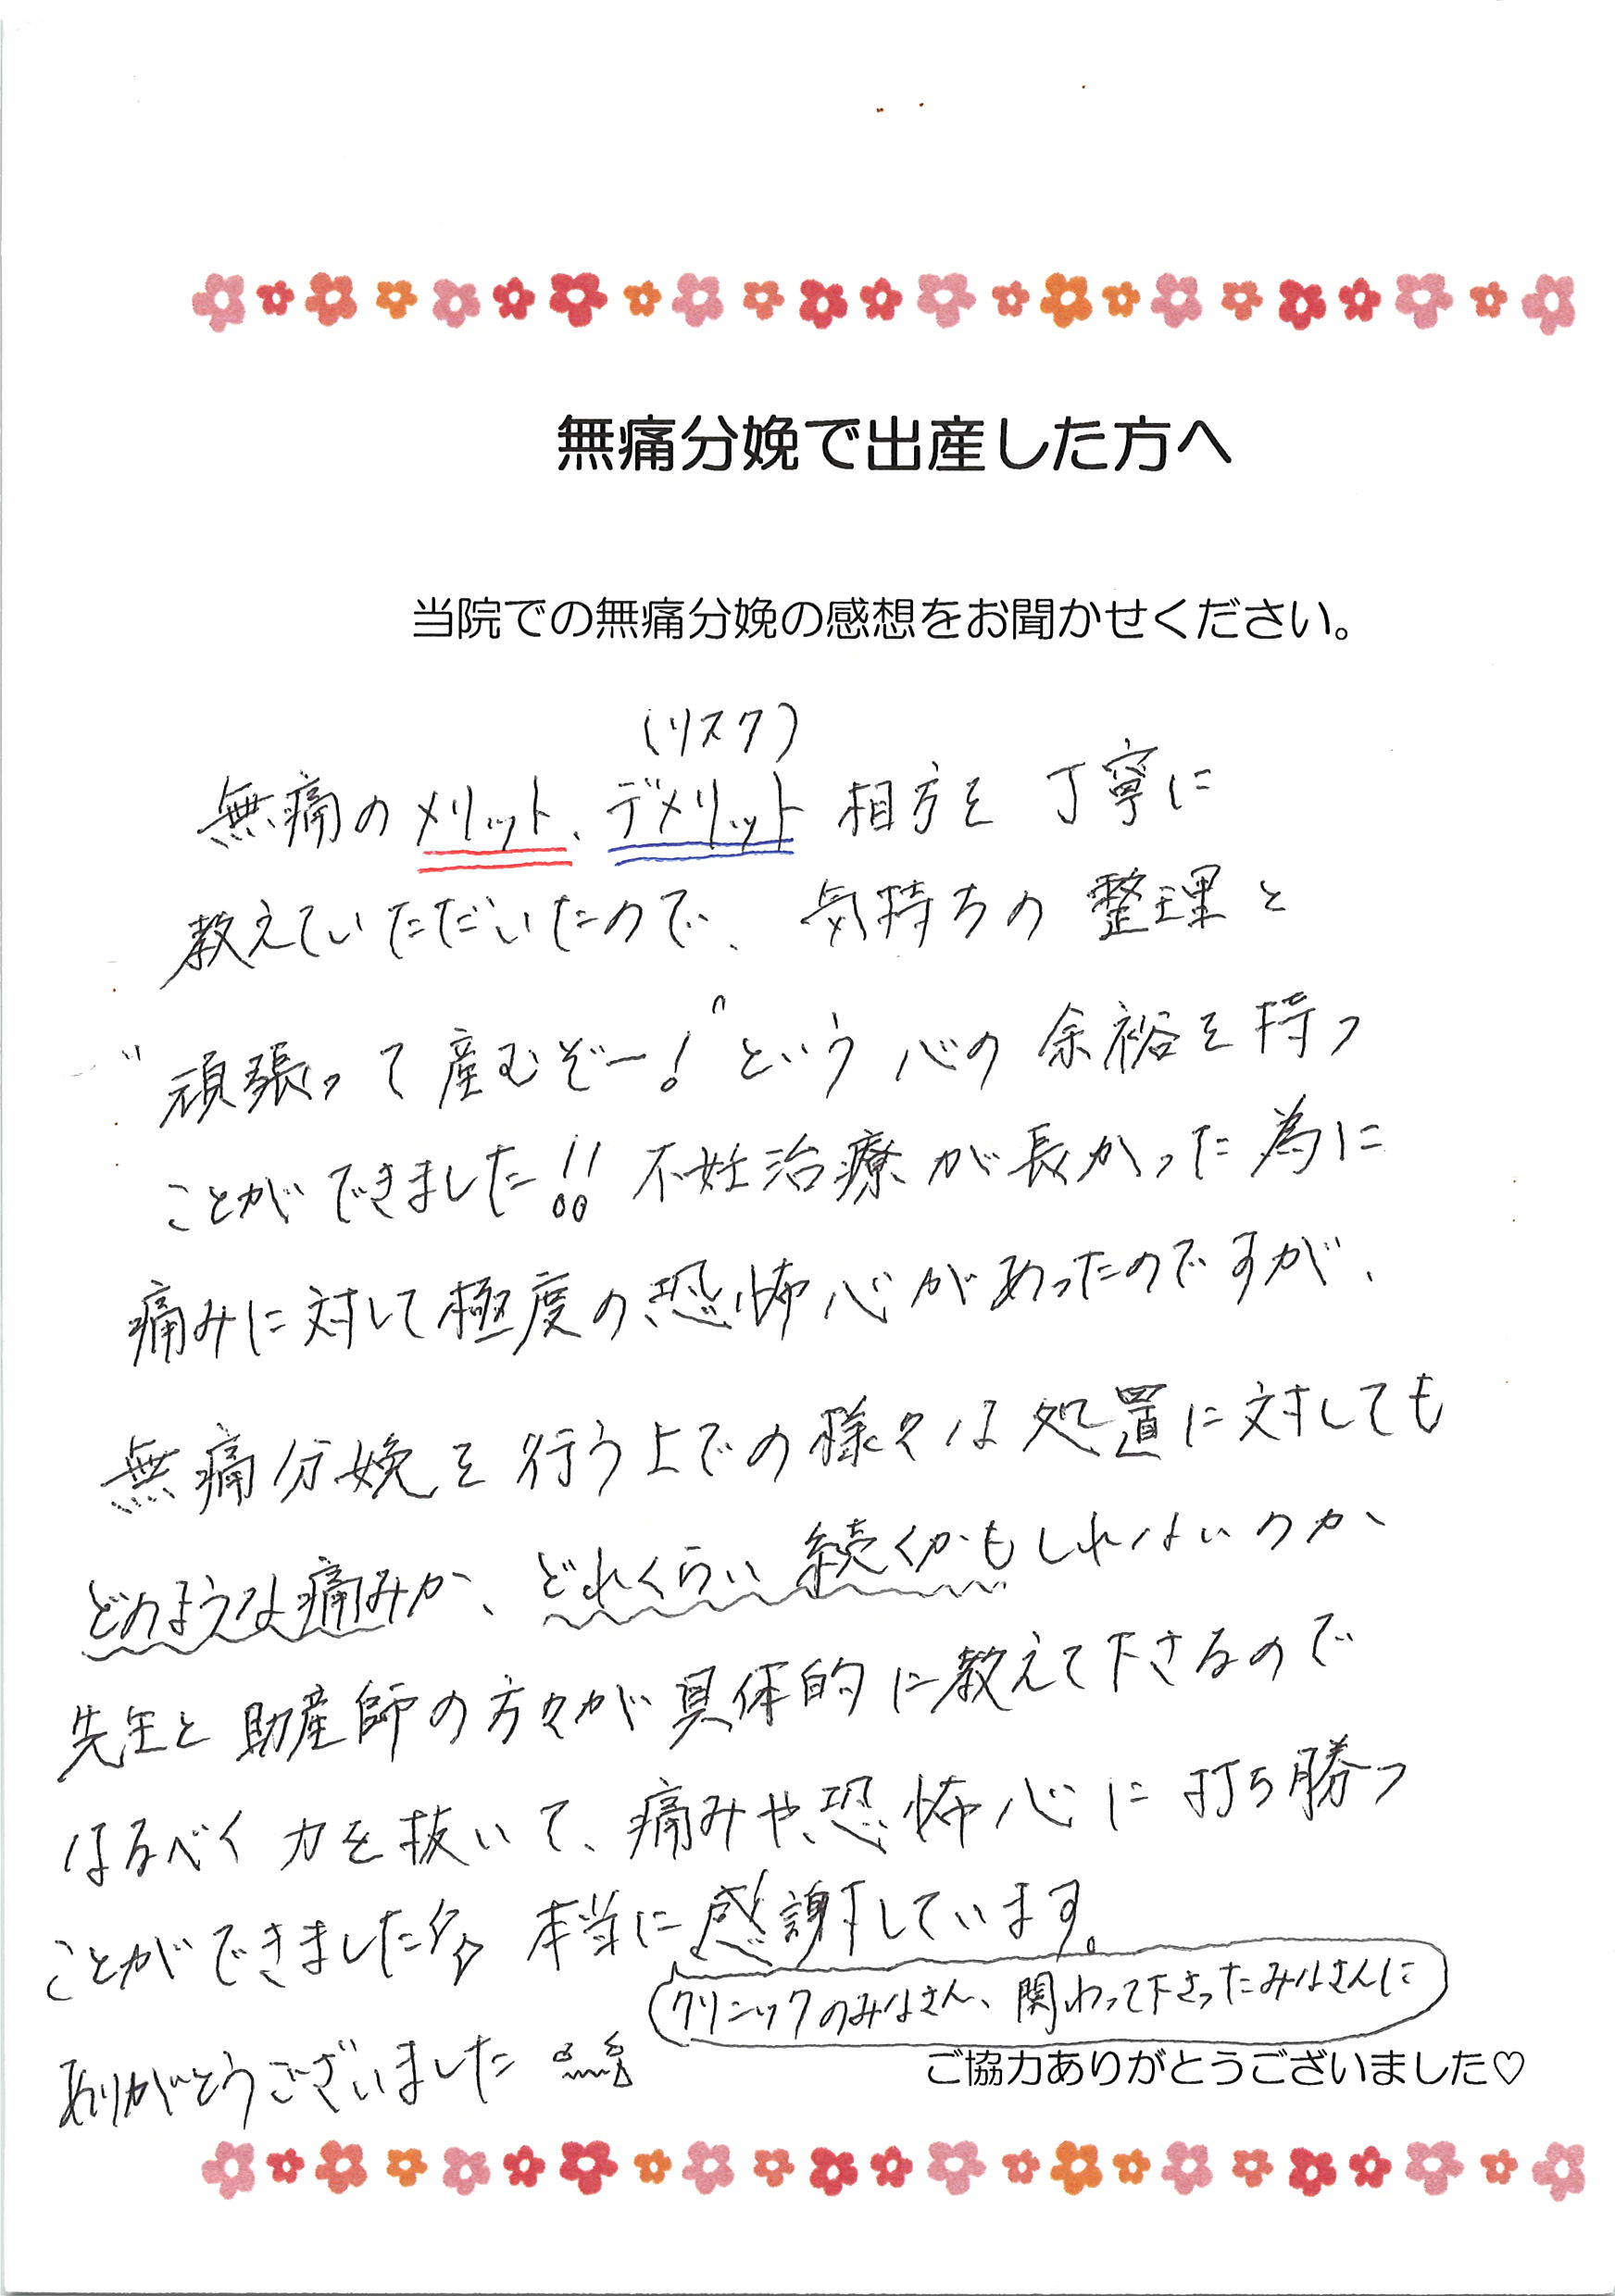 無痛分娩で出産した方へ
当院での無痛分娩の感想をお聞かせください。
(リスク)
無痛のメリット、デメリット相方を丁寧に
教えていただいたので、気持ちの整理と
"頑張って産むぞー!"という心の余裕を持つ
ことができました!!不妊治療が長かった為に
痛みに対して極度の恐怖心があったのですが、
無痛分娩を行う上での様々な処置に対しても
どのような痛みか、どれくらい続くかもしれないのか、
先生と助産師の方々が具体的に教えて下さるので
なるべく力を抜いて、痛みや恐怖心に打ち勝つ
ことができました 本当に感謝しています。
クリニックのみなさん、関わって下さったみなさんに
ありがとうございました
ご協力ありがとうございました♡